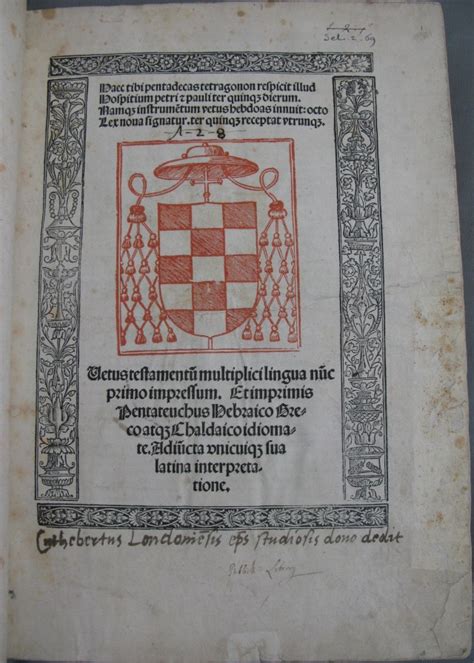 Sel. 2. 69
Haec tibi pentadecas tetragonon respicit illud
Hospitium petri ⁊ pauli ter quinqꝫ dierum.
Namqꝫ instrumẽtum vetus hebdoas innuit: octo
Lex noua signatur. ter quinqꝫ receptat vtrunqꝫ.
1-2-8
Uetus testamentũ multiplici lingua nũc
primo impressum. Et imprimis
Pentateuchus Hebraico Gre-
co atqꝫ Chaldaico idioma-
te. Adiũcta vnicuiqꝫ sua
latina interpreta-
tione.
Cuthebertus Londoniẽsis eps studiosis dono dedit